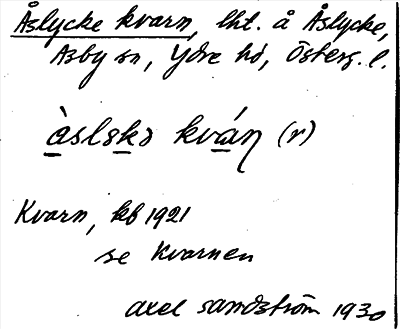 Åslycke kvarn, lht. å Åslycke,
Asby sn, Ydre hd, Österg. l.
àslskə kván (r)
Kvarn, kb 1921
se Kvarnen
Axel Sandström 1930